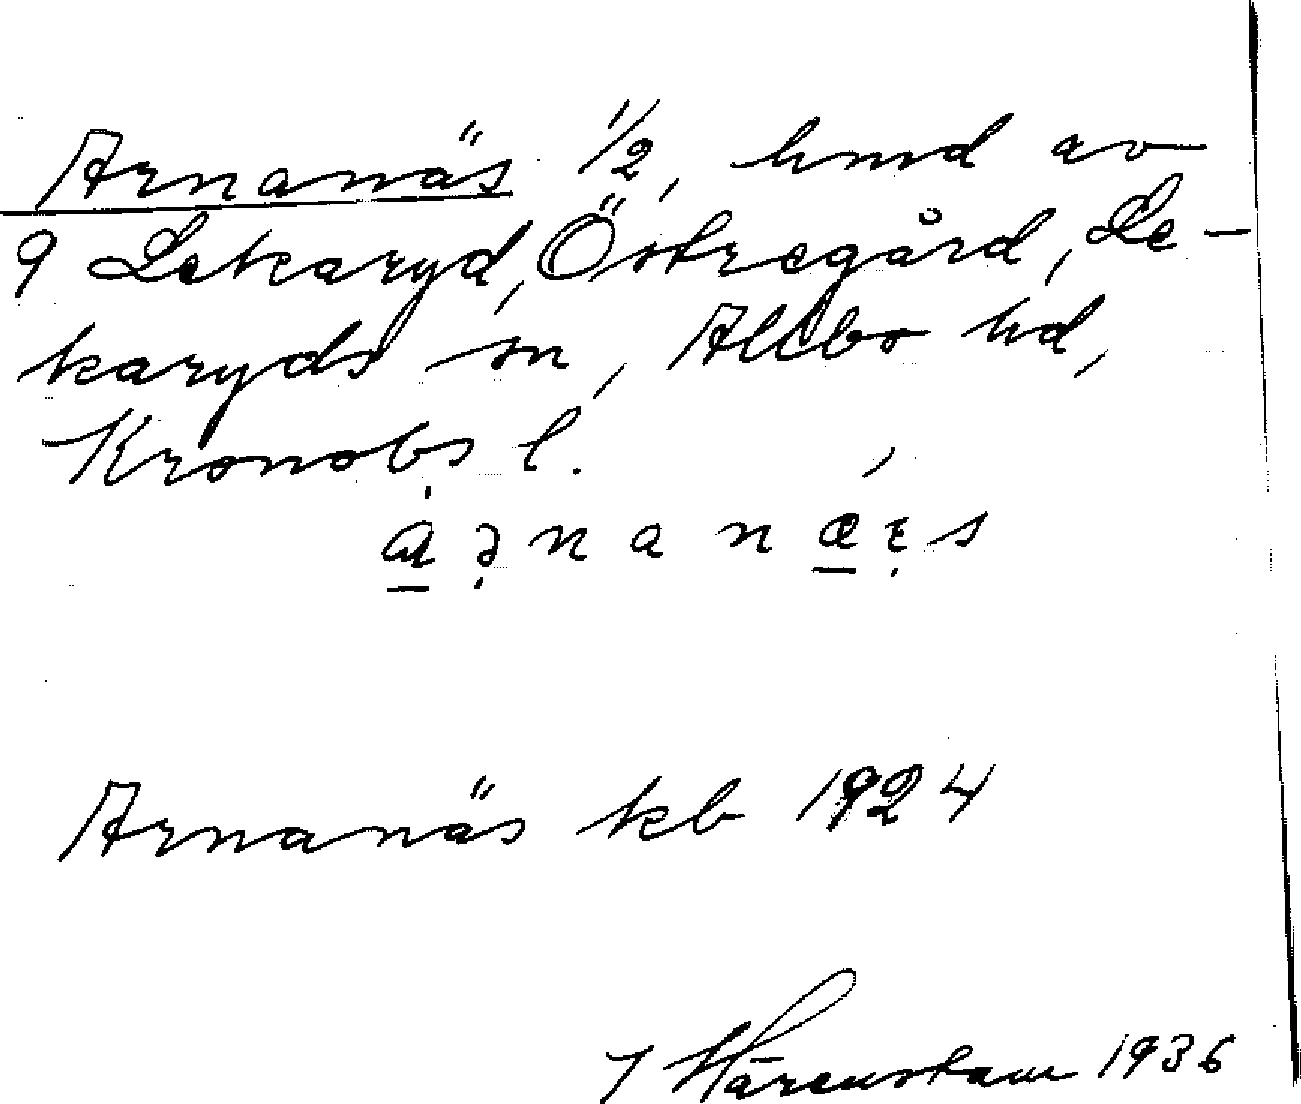 Arnanäs 1/2, hmd av
9 Lekaryd, Östregård, Le-
karyds sn, Allbo hd,
Kronobs l.
Arnanäs kb 1924
Härenstam 1936